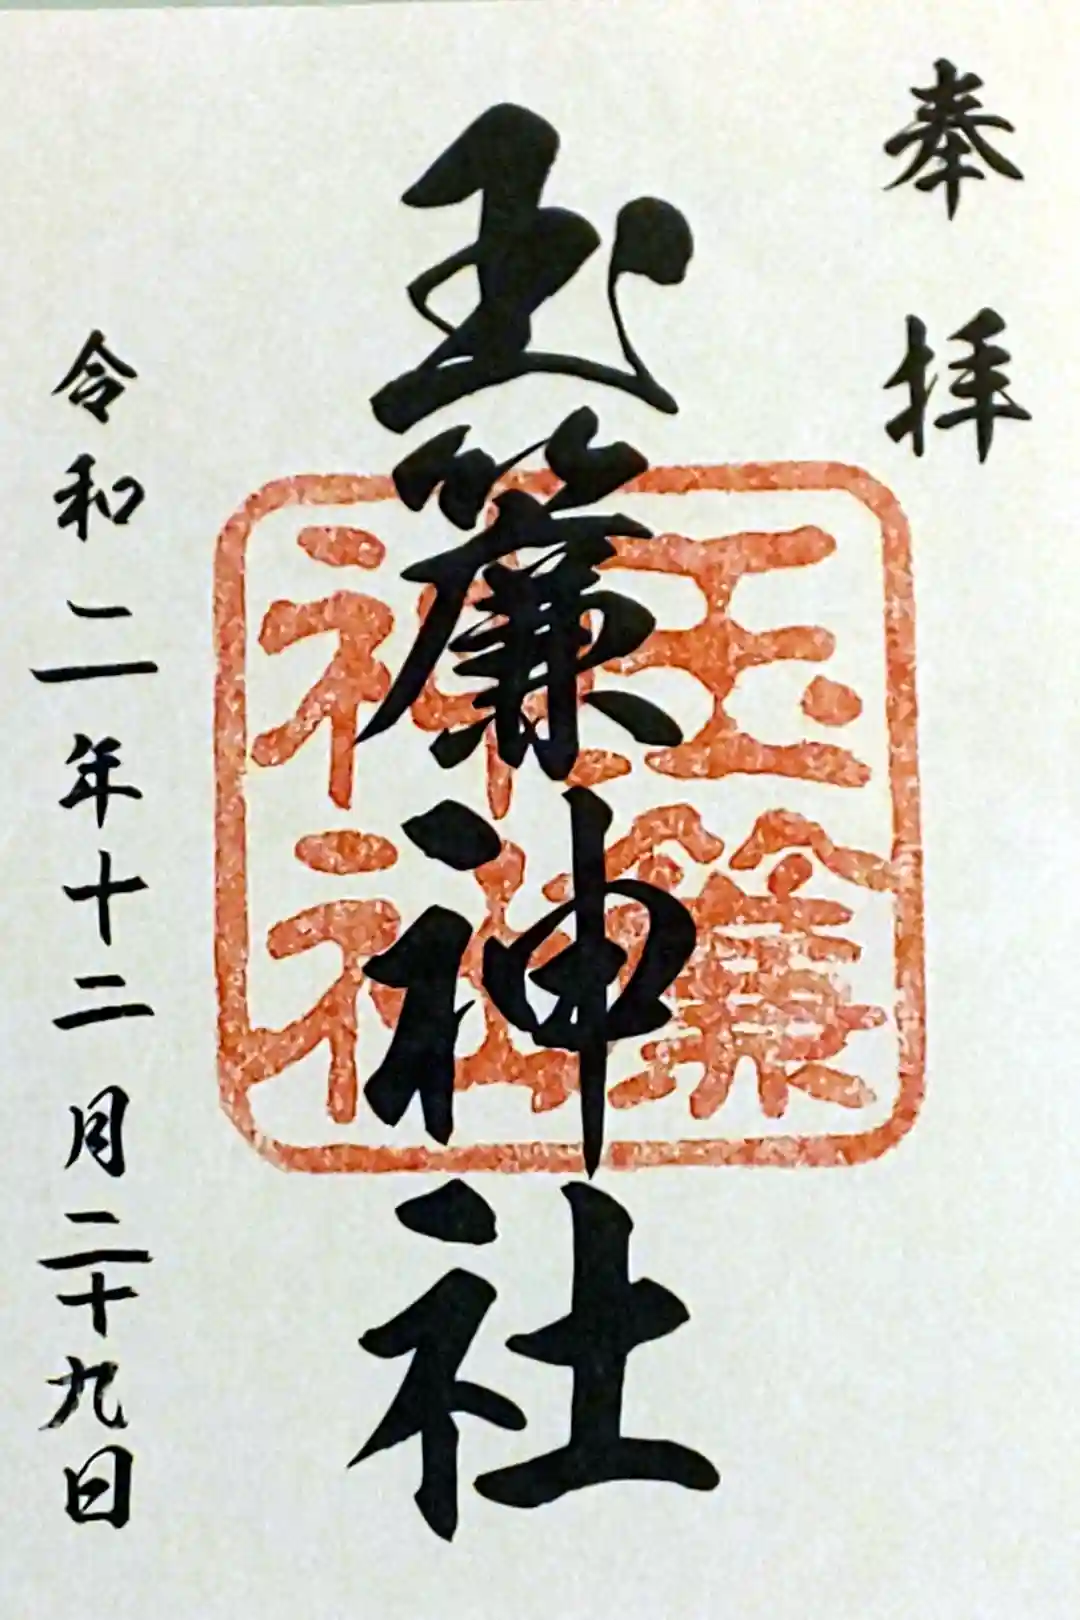 奉拝
玉簾神社
玉簾
神社
令和二年十二月二十九日